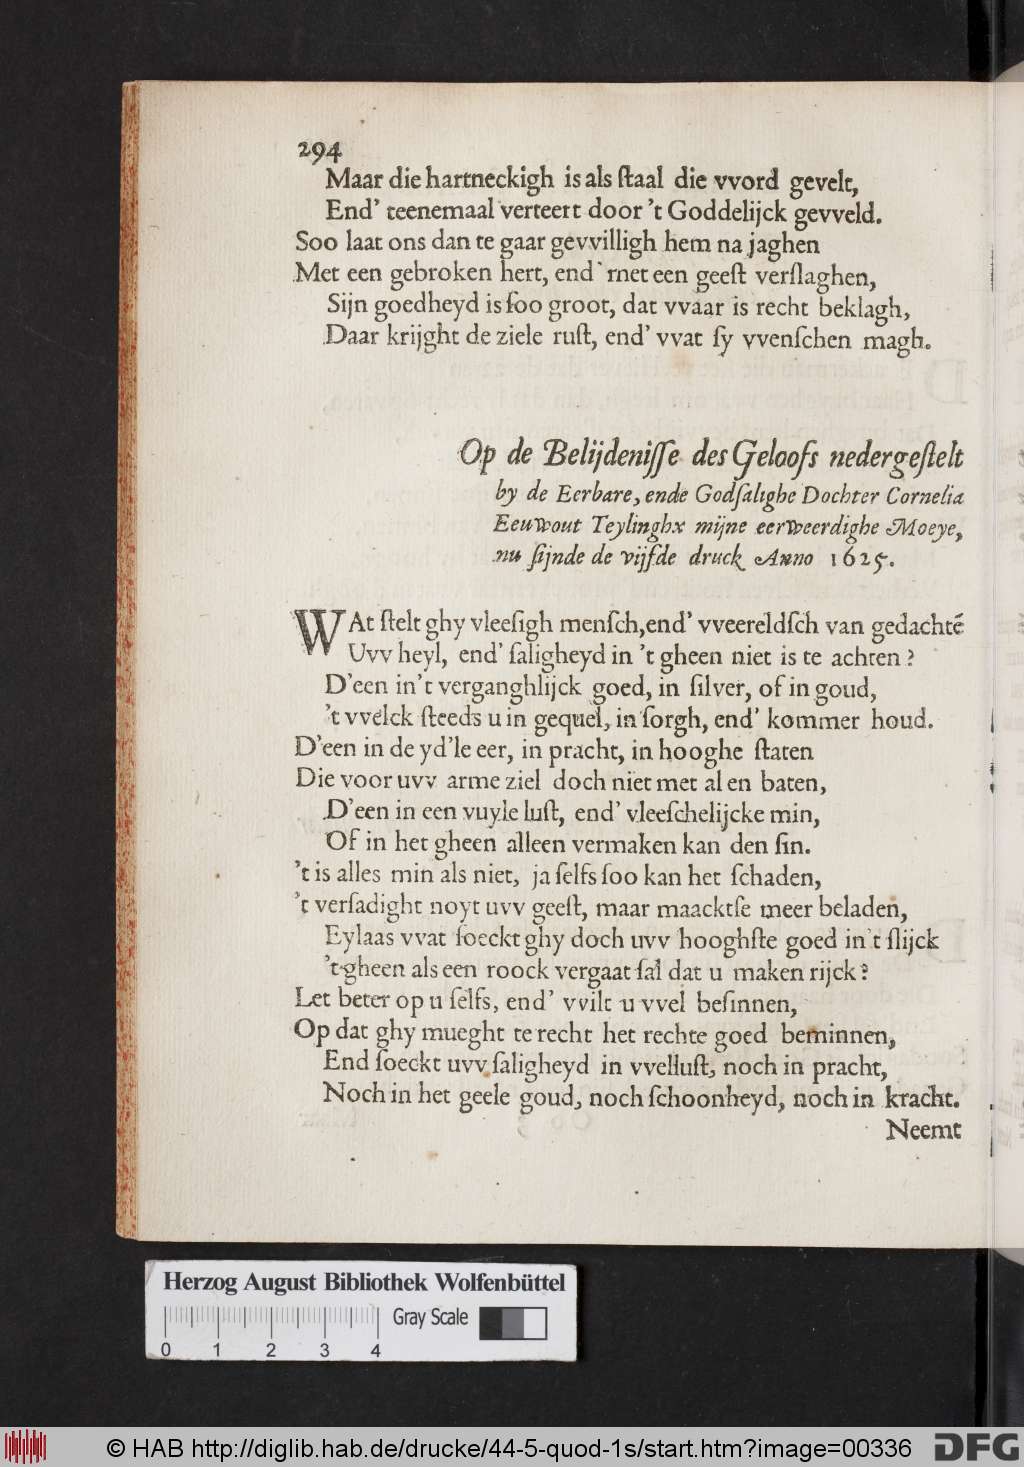 294
Maar die hartneckigh is als ſtaal die vvord gevelt,
End' teenemaal verteert door 't Goddelijck gevveld.
Soo laat ons dan te gaar gevvilligh hem na jaghen
Met een gebroken hert, end' met een geeſt verſlaghen,
Sijn goedheyd is ſoo groot, dat vvaar is recht beklagh,
Daar krijght de ziele ruſt, end' vvat ſy vvenſchen magh.
Op de Belijdeniſſe des Geloofs nedergeſtelt
by de Eerbare, ende Godſalighe Dochter Cornelia
Eeuwout Teylinghx mijne eerweerdighe Moeye,
nu ſijnde de vijfde druck Anno 1625.
WAt ſtelt ghy vleeſigh menſch, end' vveereldſch van gedachtẽ
Uvv heyl, end' ſaligheyd in 't gheen niet is te achten?
D'een in't verganghlijck goed, in ſilver, of in goud,
't vvelck ſteeds u in gequel, in ſorgh, end' kommer houd.
D'een in de yd'le eer, in pracht, in hooghe ſtaten
Die voor uvv arme ziel doch niet met al en baten,
D'een in een vuyle luſt, end' vleeſchelijcke min,
Of in het gheen alleen vermaken kan den ſin.
't is alles min als niet, ja ſelfs ſoo kan het ſchaden,
't verſadight noyt uvv geeſt, maar maacktſe meer beladen,
Eylaas vvat ſoeckt ghy doch uvv hooghſte goed in't ſlijck
't gheen als een roock vergaat ſal dat u maken rijck?
Let beter op u ſelfs, end' vvilt u vvel beſinnen,
Op dat ghy mueght te recht het rechte goed beminnen,
End ſoeckt uvv ſaligheyd in vvelluſt, noch in pracht,
Noch in het geele goud, noch ſchoonheyd, noch in kracht.
Neemt
Herzog August Bibliothek Wolfenbüttel
Gray Scale
0 1 2 3 4
© HAB http://diglib.hab.de/drucke/44-5-quod-1s/start.htm?image=00336
DFG